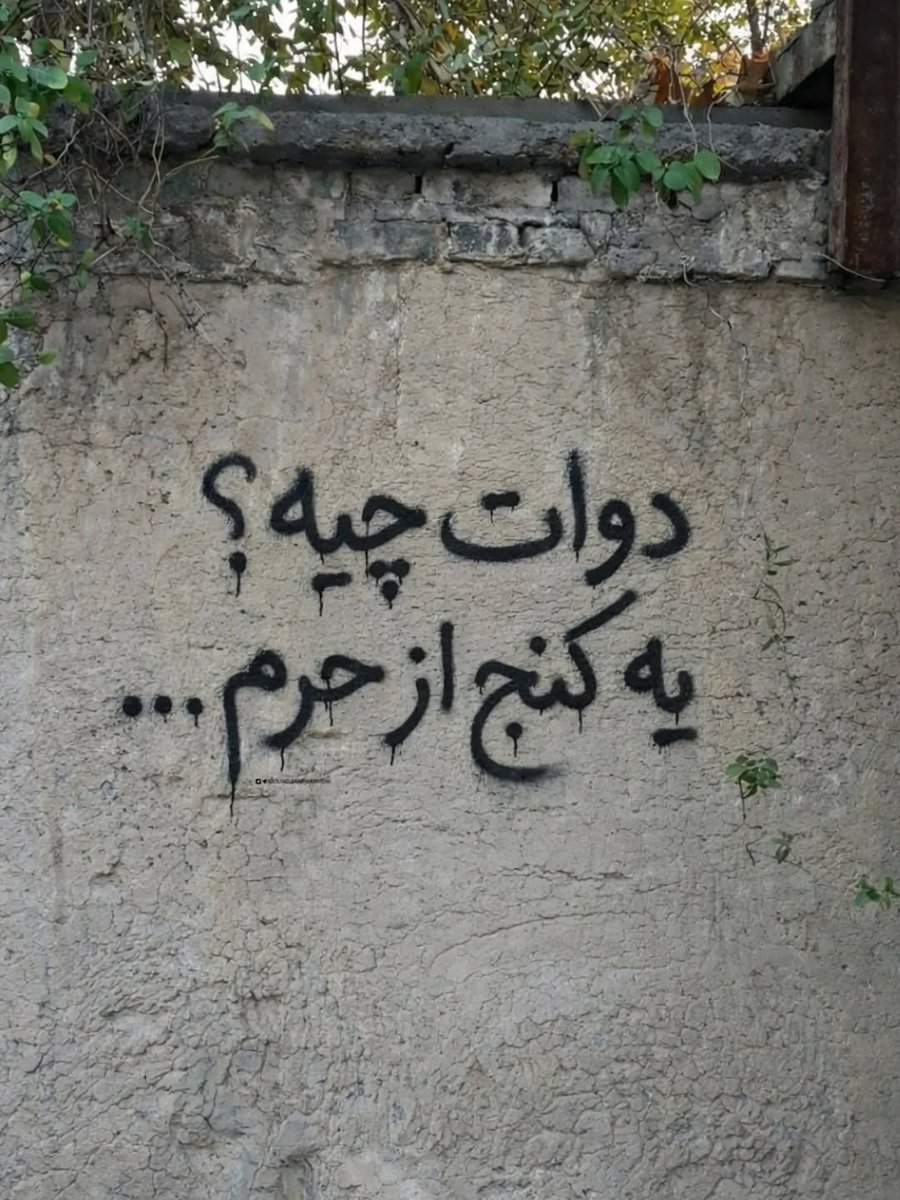 دوات چیه؟
یه کنج از حرم...